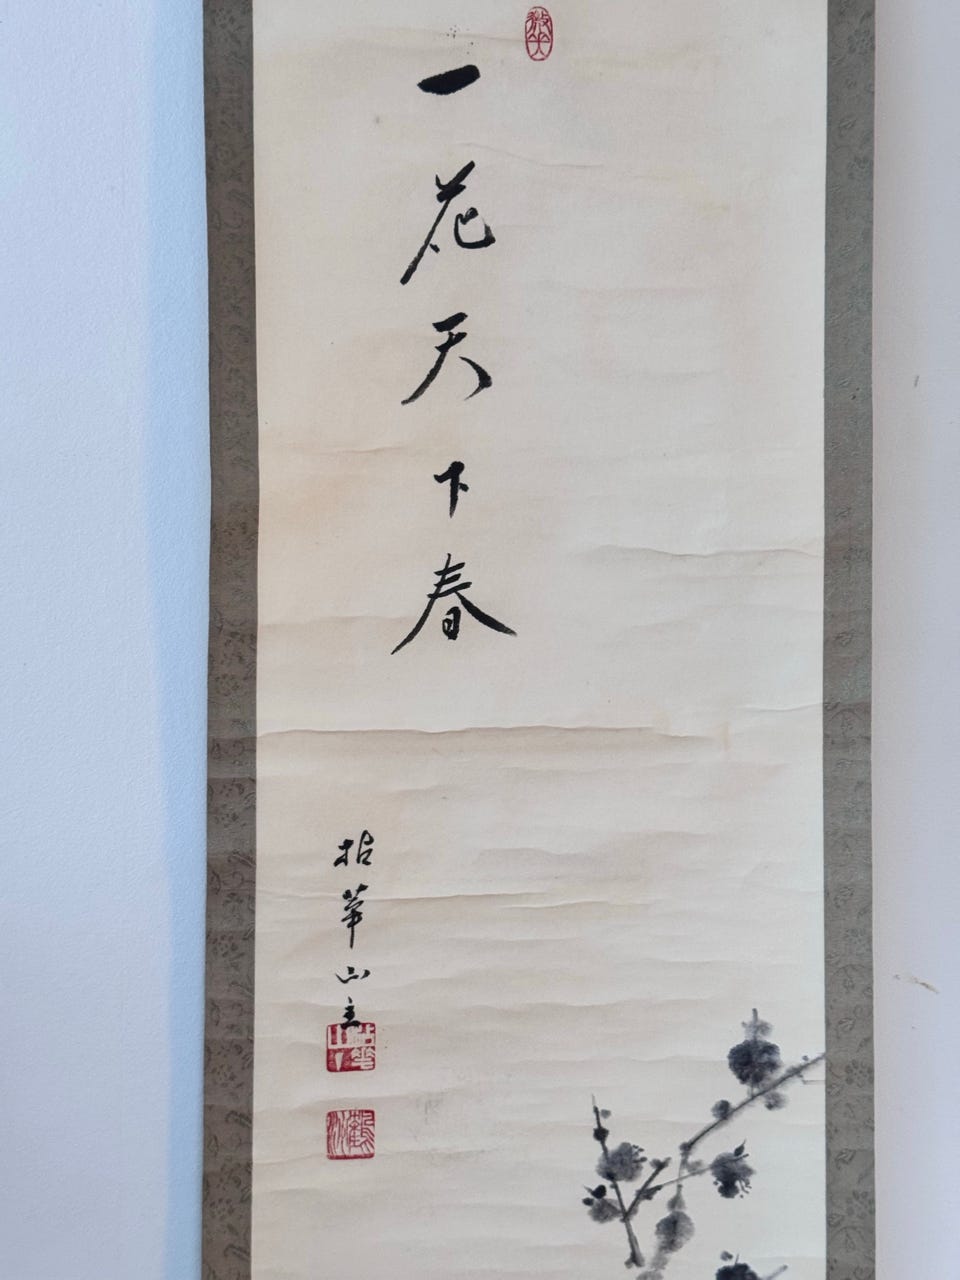 一花天下春
拈華山主